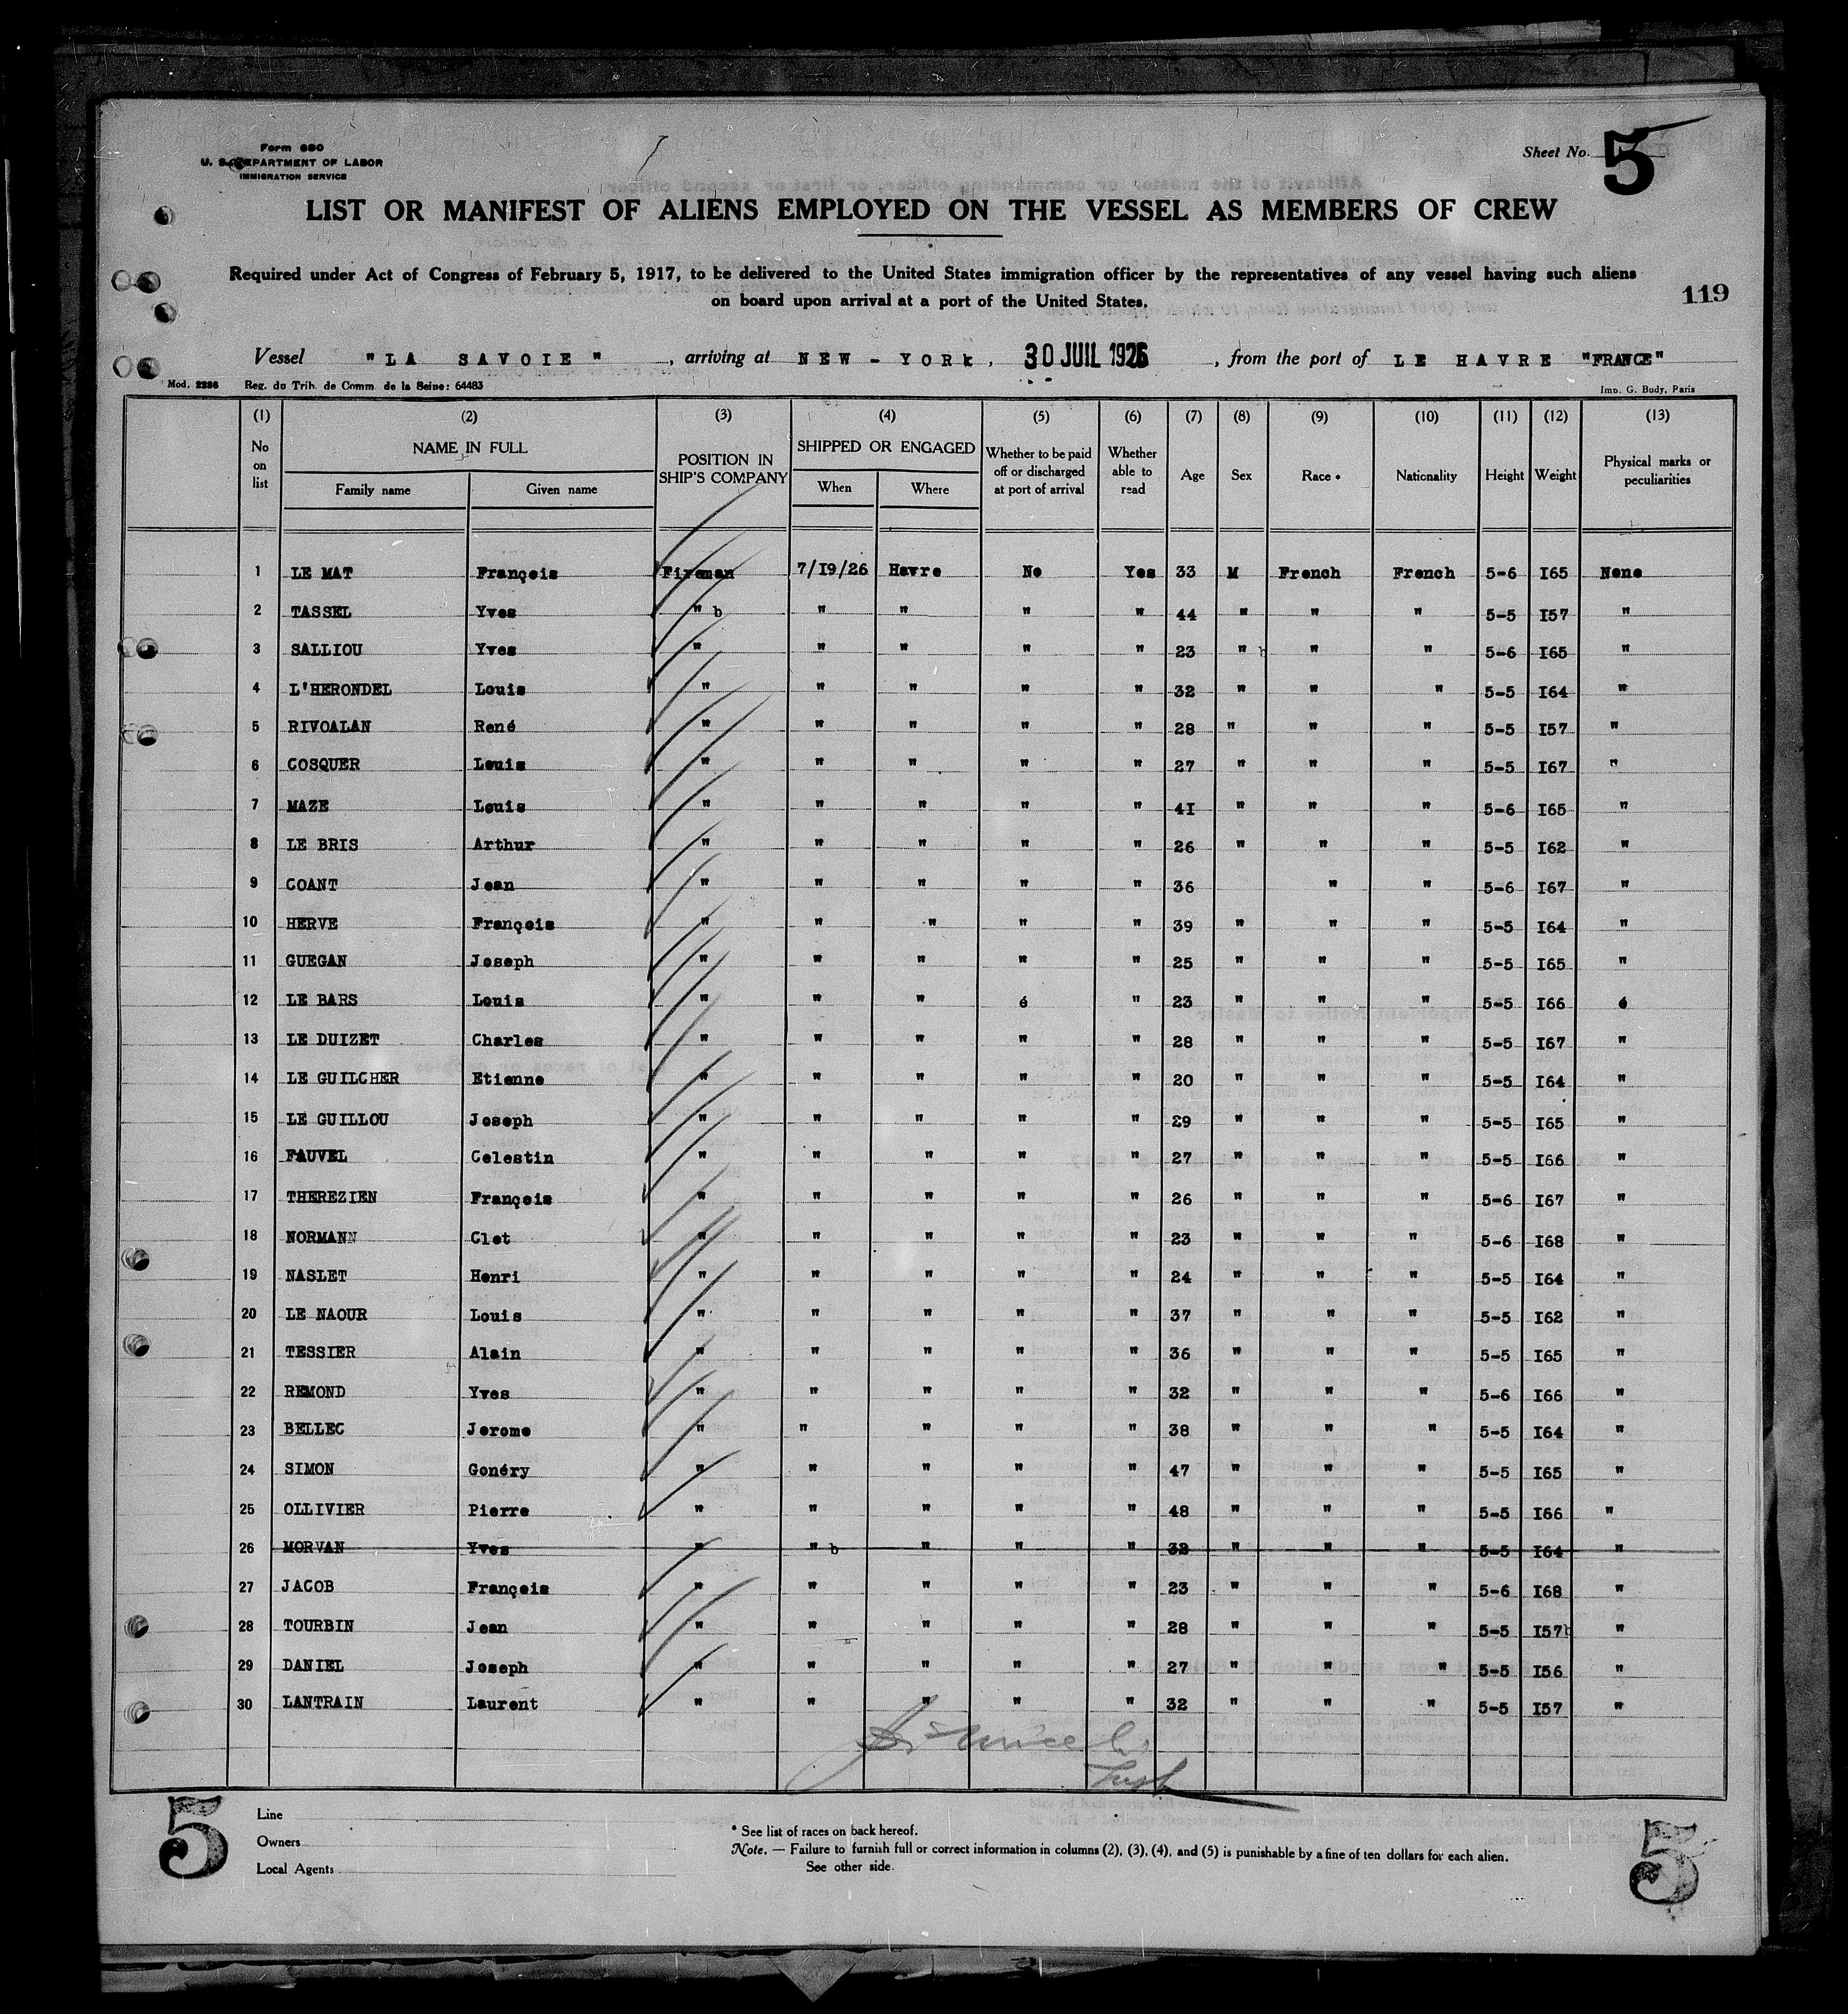 Form 680
U. S. DEPARTMENT OF LABOR
IMMIGRATION SERVICE
Sheet No. 5
LIST OR MANIFEST OF ALIENS EMPLOYED ON THE VESSEL AS MEMBERS OF CREW
Required under Act of Congress of February 5, 1917, to be delivered to the United States immigration officer by the representatives of any vessel having such aliens
on board upon arrival at a port of the United States.
119
Vessel "LA SAVOIE", arriving at NEW-YORK, 30 JUIL 1926, from the port of LE HAVRE "FRANCE"
Mod. 2286 Reg. du Trib. de Comm. de la Seine: 64483 Imp. G. Budy, Paris
(1) (2) (3) (4) (5) (6) (7) (8) (9) (10) (11) (12) (13)
No on list NAME IN FULL Family name Given name POSITION IN SHIP'S COMPANY SHIPPED OR ENGAGED When Where Whether to be paid off or discharged at port of arrival Whether able to read Age Sex Race * Nationality Height Weight Physical marks or peculiarities
1 LE MAT François Fireman 7/I9/26 Havre No Yes 33 M French French 5-6 I65 None
2 TASSEL Yves " b " " " " 44 " " " 5-5 I57 "
3 SALLIOU Yves " " " " " 23 " b " " 5-6 I65 "
4 L'HERONDEL Louis " " " " " 32 " " " 5-5 I64 "
5 RIVOALAN René " " " " " 28 " " " 5-5 I57 "
6 COSQUER Louis " " " " " 27 " " " 5-5 I67 "
7 MAZE Louis " " " " " 4I " " " 5-6 I65 "
8 LE BRIS Arthur " " " " " 26 " " " 5-5 I62 "
9 COANT Jean " " " " " 36 " " 5-6 I67 "
10 HERVE François " " " " " 39 " " " 5-5 I64 "
11 GUEGAN Joseph " " " " " 25 " " " 5-5 I65 "
12 LE BARS Louis " " " é " 23 " " " 5-5 I66 é
13 LE DUIZET Charles " " " " " 28 " " " 5-5 I67 "
14 LE GUILCHER Etienne " " " " " 20 " " " 5-5 I64 "
15 LE GUILLOU Joseph " " " " " 29 " " " 5-5 I65 "
16 FAUVEL Celestin " " " " " 27 " " " 5-5 I66 "
17 THEREZIEN François " " " " " 26 " " " 5-6 I67 "
18 NORMANN Clet " " " " " 23 " " " 5-6 I68 "
19 NASLET Henri " " " " " 24 " " " 5-5 I64 "
20 LE NAOUR Louis " " " " " 37 " " " 5-5 I62 "
21 TESSIER Alain " " " " " 36 " " " 5-5 I65 "
22 REMOND Yves " " " " " 32 " " " 5-6 I66 "
23 BELLEC Jerome " " " " " 38 " " " 5-5 I64 "
24 SIMON Gonéry " " " " " 47 " " " 5-5 I65 "
25 OLLIVIER Pierre " " " " " 48 " " " 5-5 I66 "
26 MORVAN Yves " " b " " " 32 " " " 5-5 I64 "
27 JACOB François " " " " " 23 " " " 5-6 I68 "
28 TOURBIN Jean " " " " " 28 " " " 5-5 I57b "
29 DANIEL Joseph " " " " " 27 " " " 5-5 I56 "
30 LANTRAIN Laurent " " " " " 32 " " " 5-5 I57 "
5 Line
Owners
Local Agents
* See list of races on back hereof.
Note. — Failure to furnish full or correct information in columns (2), (3), (4), and (5) is punishable by a fine of ten dollars for each alien.
See other side.
5